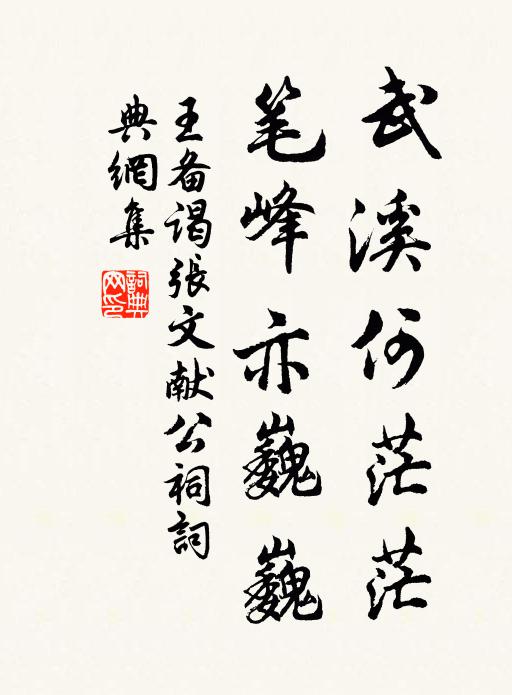 武溪何茫茫
笔峰亦巍巍
王备谒張文献公祠詞
典網集
詞典网印